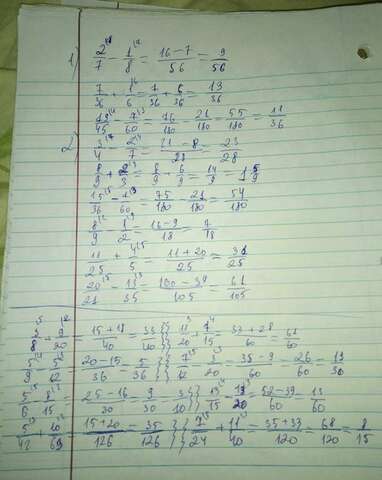 1) 2/7 - 1/8 = 16-7/56 = 9/56
7/36 + 1/6 = 7/36 + 6/36 = 13/36
19/45 - 7/60 = 76/180 - 21/180 = 55/180 = 11/36
2) 3/4 - 2/7 = 21-8/28 = 23/28
8/9 + 2/3 = 8/9 + 6/9 = 14/9 = 1 5/9
15/36 - 7/60 = 75/180 - 21/180 = 54/180
8/9 - 1/2 = 16-9/18 = 7/18
11/25 + 4/5 = 11+20/25 = 31/25
20/21 - 13/35 = 100-39/105 = 61/105
3/8 + 9/20 = 15+18/40 = 33/40 11/20 + 7/15 = 33+28/60 = 61/60
5/9 - 5/12 = 20-15/36 = 5/36 7/12 - 3/20 = 35-9/60 = 26/60 = 13/30
5/6 - 8/15 = 25-16/30 = 9/30 = 3/10 13/15 - 13/20 = 52-39/60 = 13/60
5/42 + 10/63 = 15+20/126 = 35/126 7/24 + 11/40 = 35+33/120 = 68/120 = 8/15